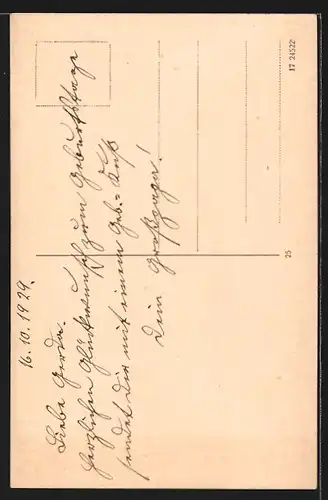 16.10.1929.
Liebe Gerda.
Herzlichen Glückwunsch zum Geburtstage
sendet Dir mit einem Geb.=Kuß
Dein Großpapa!
25
17 24522